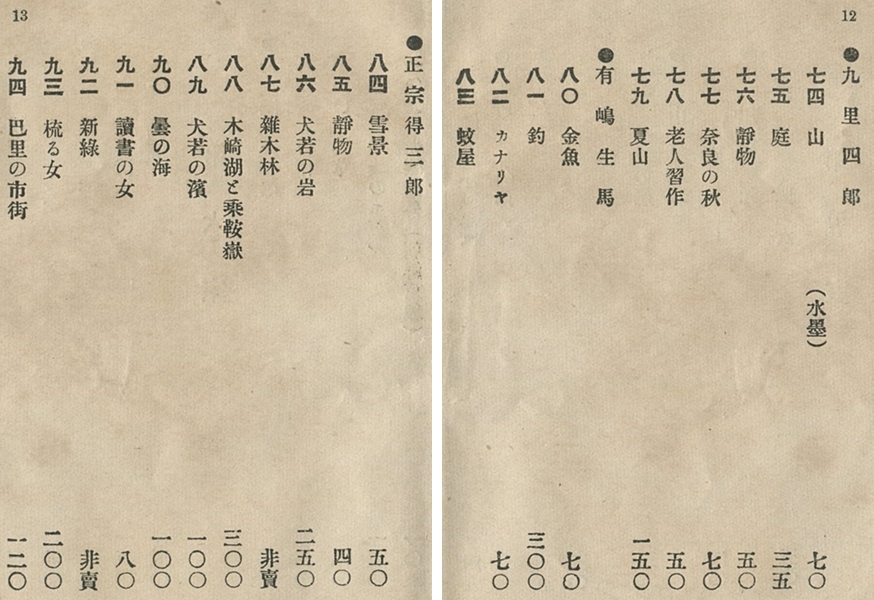 12
●九里四郎
七四 山 (水墨) 七〇
七五 庭 三五
七六 靜物 五〇
七七 奈良の秋 七〇
七八 老人習作 五〇
七九 夏山 一五〇
●有嶋生馬
八〇 金魚 七〇
八一 釣 三〇〇
八二 カナリヤ 七〇
八三 蚊屋
13
●正宗得三郎
八四 雪景 五〇
八五 靜物 四〇
八六 犬若の岩 二五〇
八七 雜木林 非賣
八八 木崎湖と乘鞍嶽 三〇〇
八九 犬若の濱 一〇〇
九〇 曇の海 一〇〇
九一 讀書の女 八〇
九二 新綠 非賣
九三 梳る女 二〇〇
九四 巴里の市街 一二〇